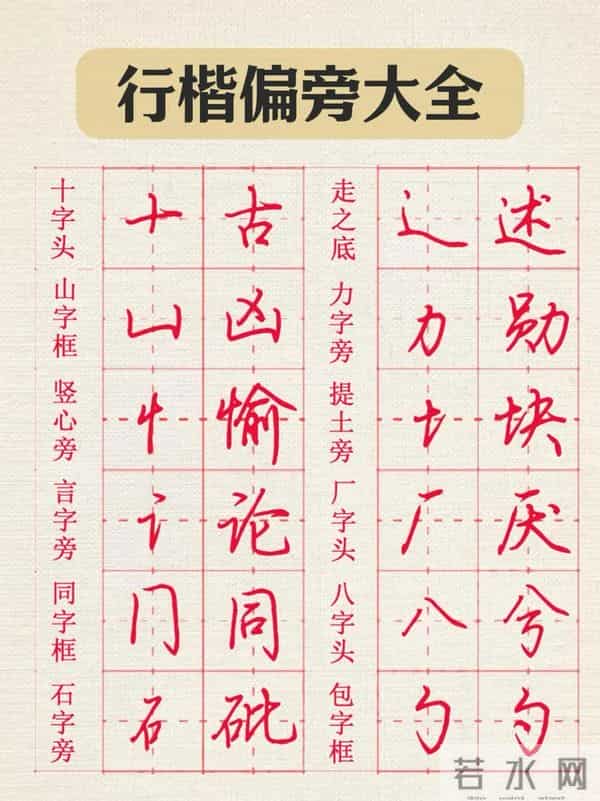 行楷偏旁大全
十字头 十 古 走之底 辶 述
山字框 凵 凶 力字旁 力 勋
竖心旁 忄 愉 提土旁 土 块
言字旁 讠 论 厂字头 厂 厌
同字框 冂 同 八字头 八 兮
石字旁 石 砒 包字框 勹 勺
若水网